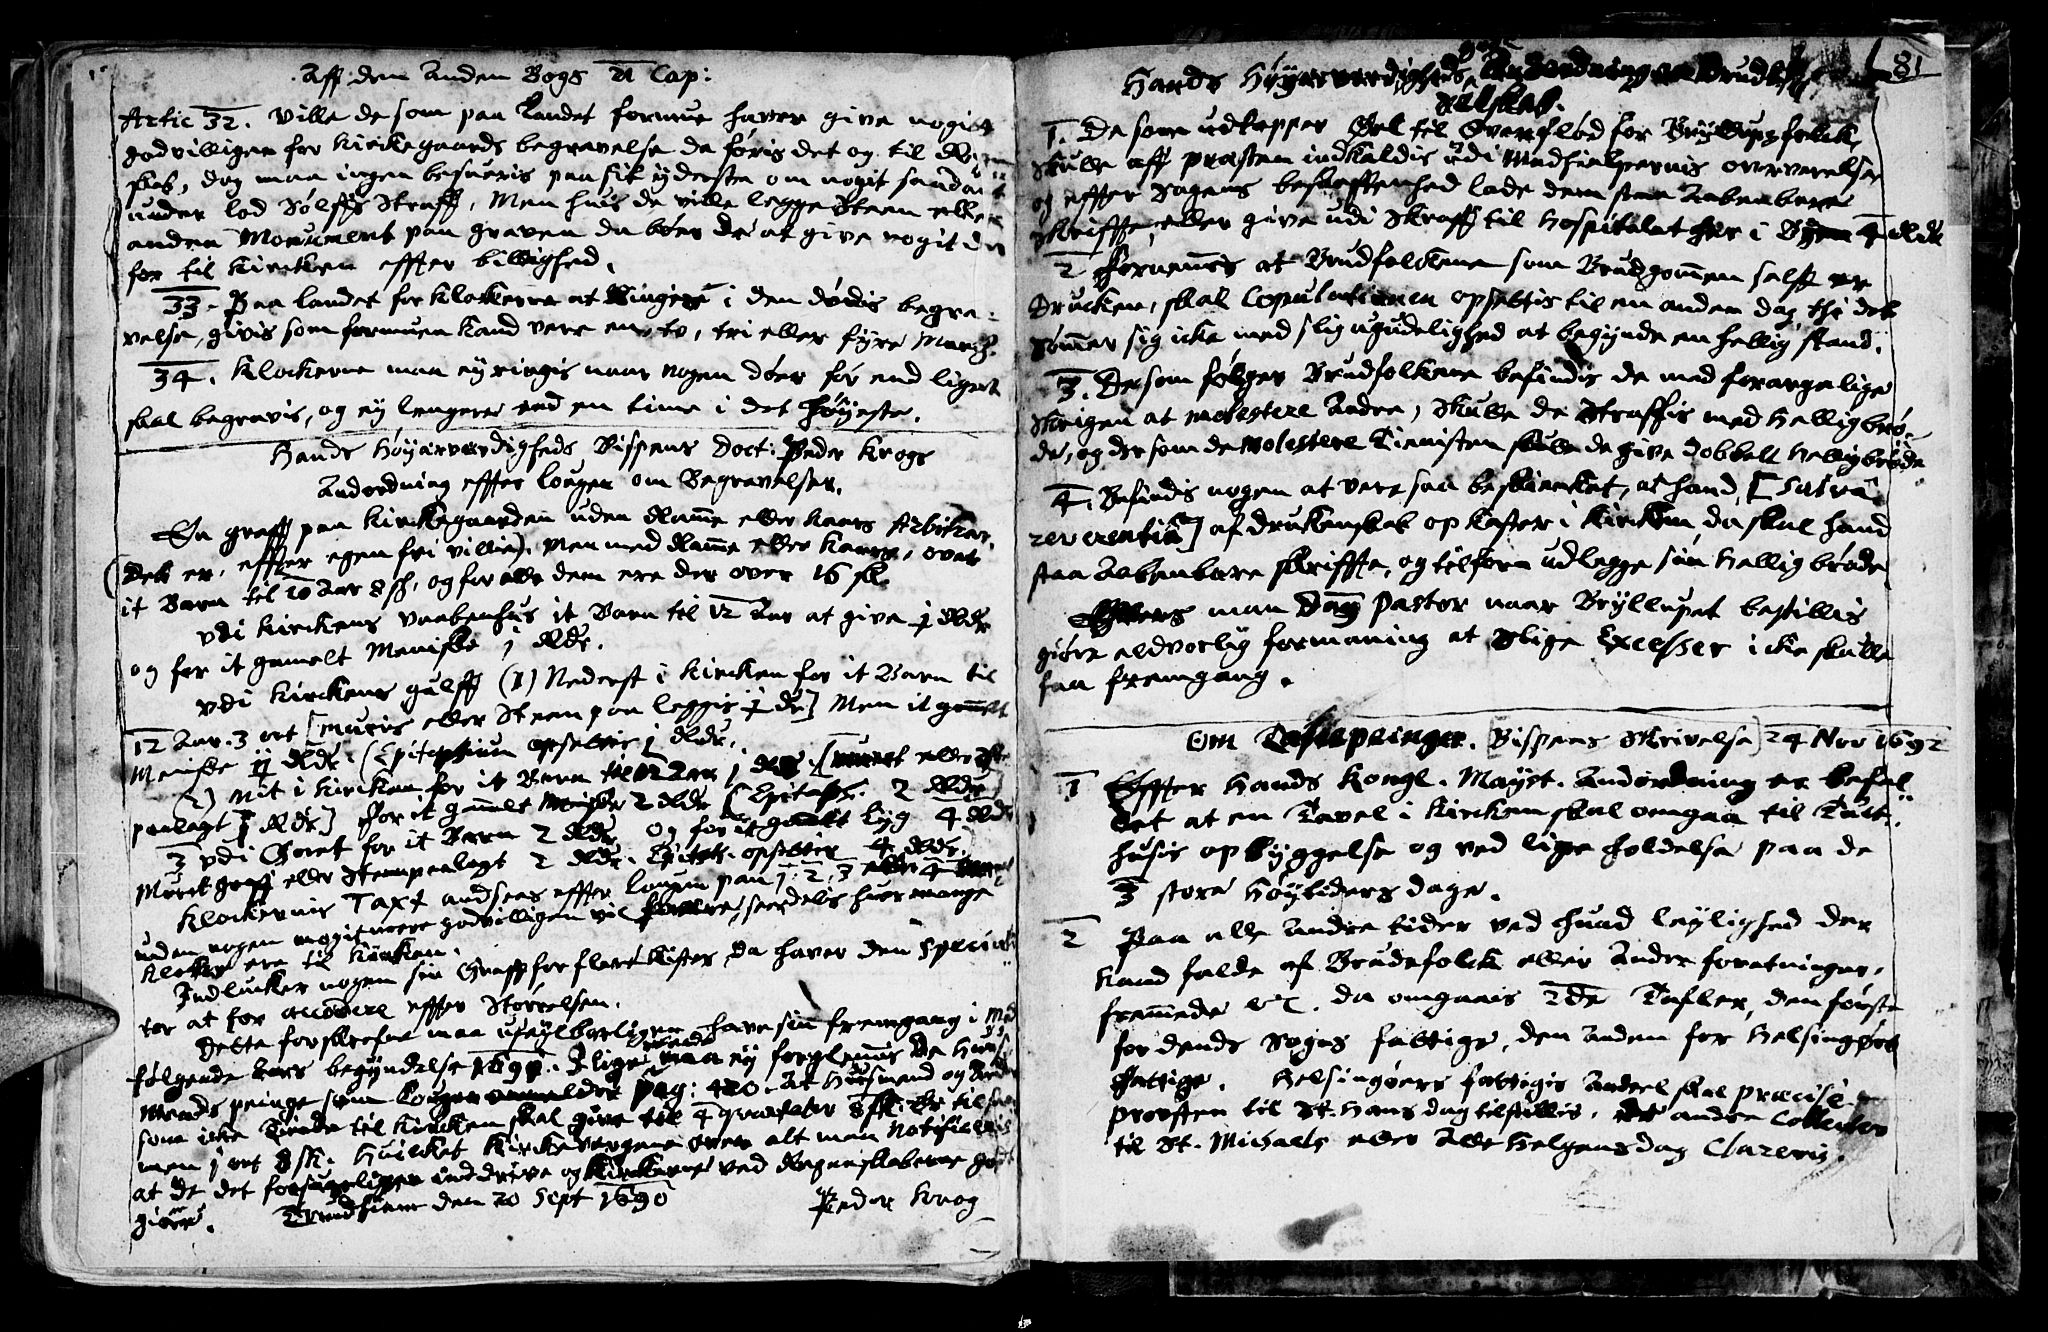 Aff dem Anden Bogs 21 Cap:
Artic 32. Ville de som paa Landet formue haver give nogit
godvilligen for Kirkegaards begravelse da føris det og til
skab, dog maa ingen besueris paa sit yderste om nogit saadant
under lod Sølffs Straff, Men huis de ville legge Steen eller
anden Monument paa graven da bør de at give nogit der
for til Kircken effter billighed.
33. Paa landet for Klockerne at Ringes i den dødis begra-
velse, givis som formuen kand vere en, to, tri eller fyre March.
34. Klockerne maa ey ringis naar nogen døer før end liget
skal begravis, og ey lengere end en time i det høyeste.
Hands Høyærværdigheds Bispens Doct: Peder Krogs
Anordning effter lougen om Begravelser.
En graff paa Kirckegaarden uden Ramme eller Kaars Arbitrar.
(det er, effter egen fri villie). Men med Ramme eller Kaars, over
it Barn til 10 Aar 8 sh, og for alle dem ere der over 16 sk.
Vdi Kirckens Vaabenhus it Barn til 12 Aar at give
og for it gamelt Meniske j Rdr.
Vdi Kirckens gulff (1) Nederst i Kircken for it Barn til
12 Aar. 3 ort [Muris eller Steen paa leggis Men it gamelt
Meniske (Epitaphium opsettis j Rdr.
(2) Mit i Kircken for it Barn til 12 Aar j Rdr [muret eller Ste
paalagt For it gamelt Meniske 2 Rdr [Epitaph. 2 Rdr]
3 Vdi Coret for it Barn 2 Rdr og for it gamelt Lyg 4 Rdr
Muret graff eller Steenpaalagt 2 Rdr. Epitaph. opsettis 4 Rdr.
Klockernis Taxt andsees effter lougen paa 1. 2. 3 eller 4
uden nogen nogit mere godvilligen vil forære, seerdelis huor mange
Klocker ere til Kircken.
Indlucker nogen sin Graff for flere kister da haver den Specia
ter at for accordere effter Størrelsen.
Dette forskrefne maa ufeylbarligen have sin fremgang i Nest
følgende Aars begyndelse 1691. Ilige maade maa ey forglemis De Huus
Mends penge som Lougen ommelder pag: 420. At Husmend og Andre
som icke Tiende til Kircken skal give til 4 qvartaler 8 sk. Er tilsam
men j ort 8 sk. Huilcket Kirckevergene over alt maa Notificeris
at de det forsvarligen inddrive og Kirckerne ved Regenskaberne godt
giøre. Trundhiem den 20 Sept 1690 Peder Krog
81
Hands Høyærværdigheds Anordning om Brude
Selskab.
1. De som udtapper Øel til Overflød for Bryllups folck,
skulle aff præsten indkaldis udi Medhielpernis oververelse
og effter sagens beskaffenhed lade dem staa Aabenbare
skriffte, eller give udi Straff til Hospitalet her i Byen 4 Rdr
2 Fornemes at Brudfolckene som Brudgommen selff er
drucken, skal Copulationen opsettis til en anden dag thi det
sømmer sig icke med slig ugudelighed at begynde en hellig stand.
3. De som følger Brudfolckene befindis de med forargelige
skrigen at molestere Andre, skulle de straffis med Helligbrø-
de, og der som de molestere Tienisten skulle de give dobbelt helligbrøde
4. Befindis nogen at vere saa beskiencket, at hand, [salvâ
reverentiâ] af druckenskab opkaster i Kircken, da skal hand
staa Aabenbare skriffte, og tilforn udlegge sin Helligbrøde
Ellers maa Dom Pastor naar Bryllupet bestillis
giøre aldvorlig formaning at slige Excesser icke skulle
faa fremgang.
Om Tafle penger. [Bispens Skrivelse] 24 Nov 1692
1 Effter Hands Kongl. Mayst. Anordning er befal-
det at en Tavel i Kircken skal omgaa til Tuct-
husis opbyggelse og ved lige holdelse paa de
3 store Høytiders dage.
2 Paa alle Andre tider ved huad leylighed der
kand falde af Brudefolck eller Andre foretninger,
fremmede etc. da omgaais 2de Tafler, den første
for dends Sogns fattige, den anden for Helsingørs
Fattige. Helsingøers fattigis Andeel skal præcisè
provsten til St. Hans dag tilstillis. det andre Collecter
til St. Michaels eller Alle Helgens dag Clareris.